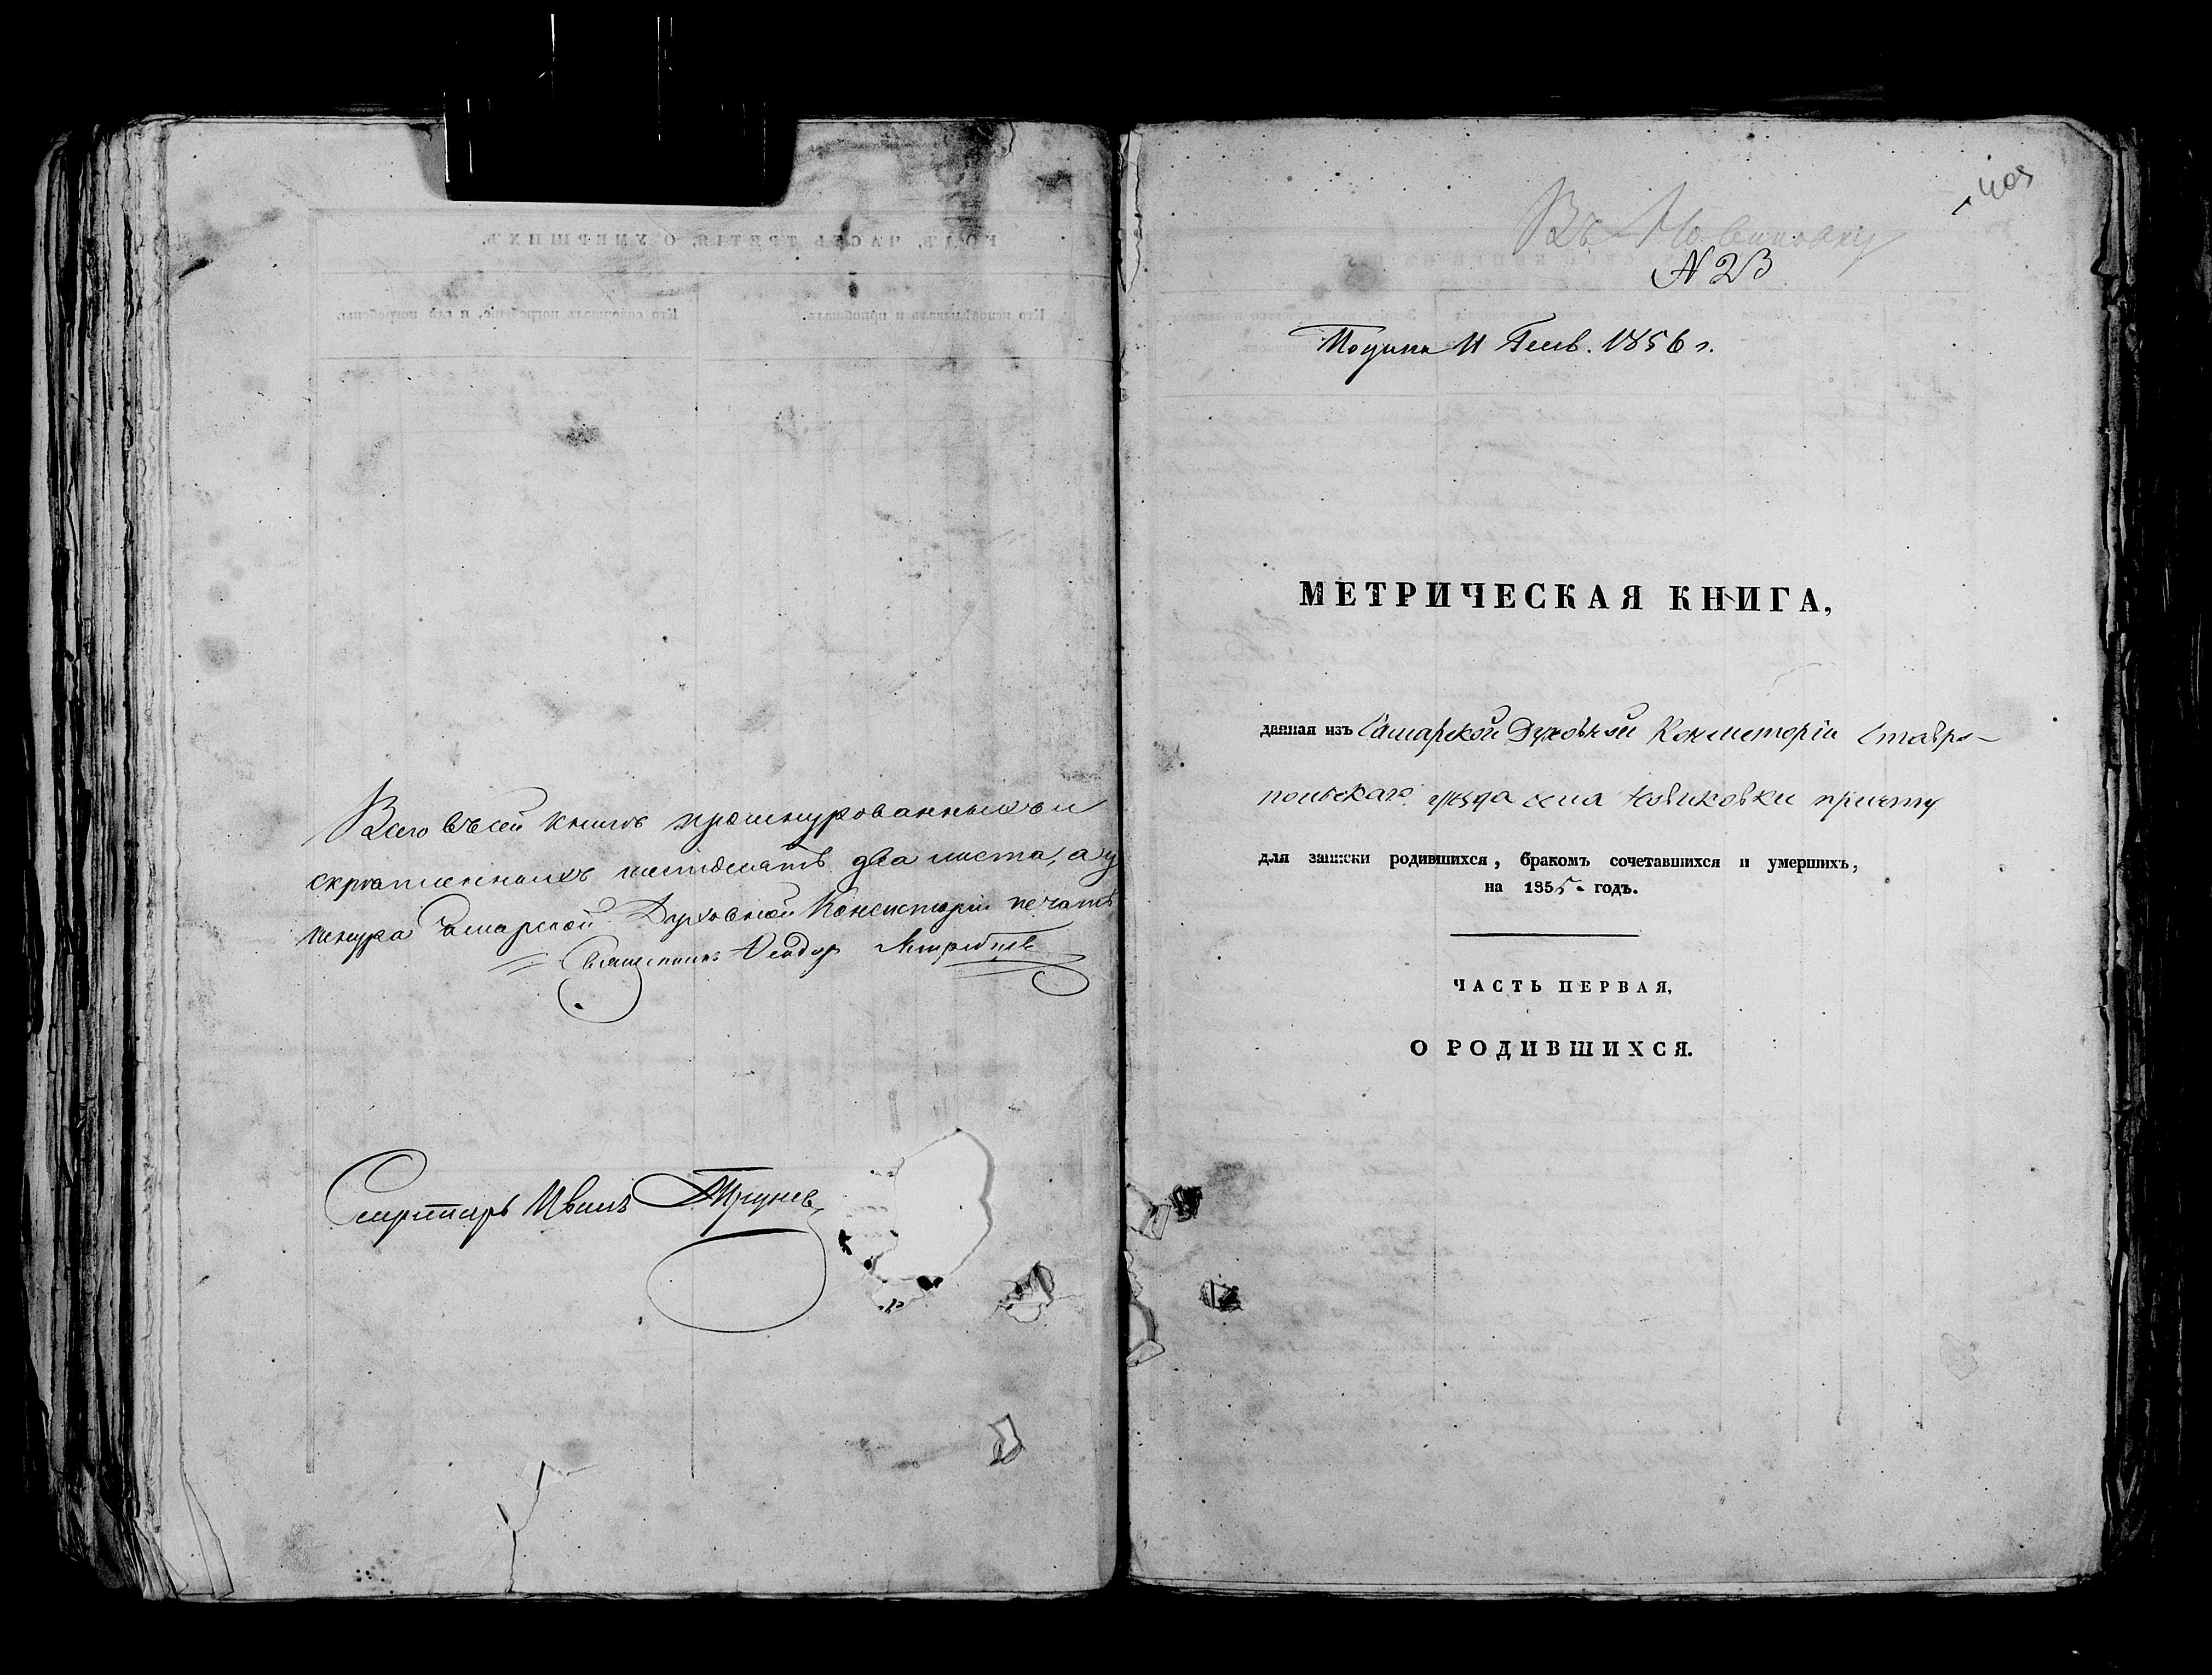 Всего въ сей книгѣ прошнурованныхъ и
скрѣпленныхъ шестдесятъ два листа, а у
шнура Самарской Духовной Консисторіи печать
Священникъ Ѳеодоръ
Секретарь Иванъ
Въ Новиковку
N 23
Получена 11 Генв. 1856 г.
МЕТРИЧЕСКАЯ КНИГА,
данная изъ Самарской Духовной Консисторіи Ставро-
польскаго уѣзда села Новиковки причту
для записки родившихся, бракомъ сочетавшихся и умершихъ,
на 1855 годъ.
ЧАСТЬ ПЕРВАЯ,
О РОДИВШИХСЯ.